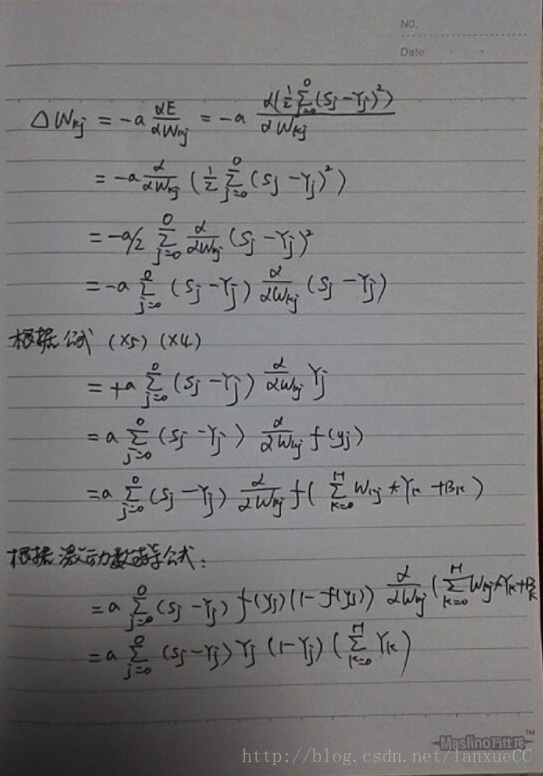 NO.
Date
ΔW_kj = -a αE/αW_kj = -a α(½ Σ_{j=0}^{O} (S_j - Y_j)²) / αW_kj
= -a α/αW_kj (½ Σ_{j=0}^{O} (S_j - Y_j)²)
= -a/2 Σ_{j=0}^{O} α/αW_kj (S_j - Y_j)²
= -a Σ_{j=0}^{O} (S_j - Y_j) α/αW_kj (S_j - Y_j)
根据公式 (x5) (x4)
= +a Σ_{j=0}^{O} (S_j - Y_j) α/αW_kj Y_j
= a Σ_{j=0}^{O} (S_j - Y_j) α/αW_kj f(y_j)
= a Σ_{j=0}^{O} (S_j - Y_j) α/αW_kj f( Σ_{k=0}^{H} W_kj * Y_k + B_k )
根据激动数求导公式:
= a Σ_{j=0}^{O} (S_j - Y_j) f(y_j) (1 - f(y_j)) α/αW_kj ( Σ_{k=0}^{H} W_kj * Y_k + B_k
= a Σ_{j=0}^{O} (S_j - Y_j) Y_j (1 - Y_j) ( Σ_{k=0}^{H} Y_k )
Maslino
http://blog.csdn.net/lanxueCC